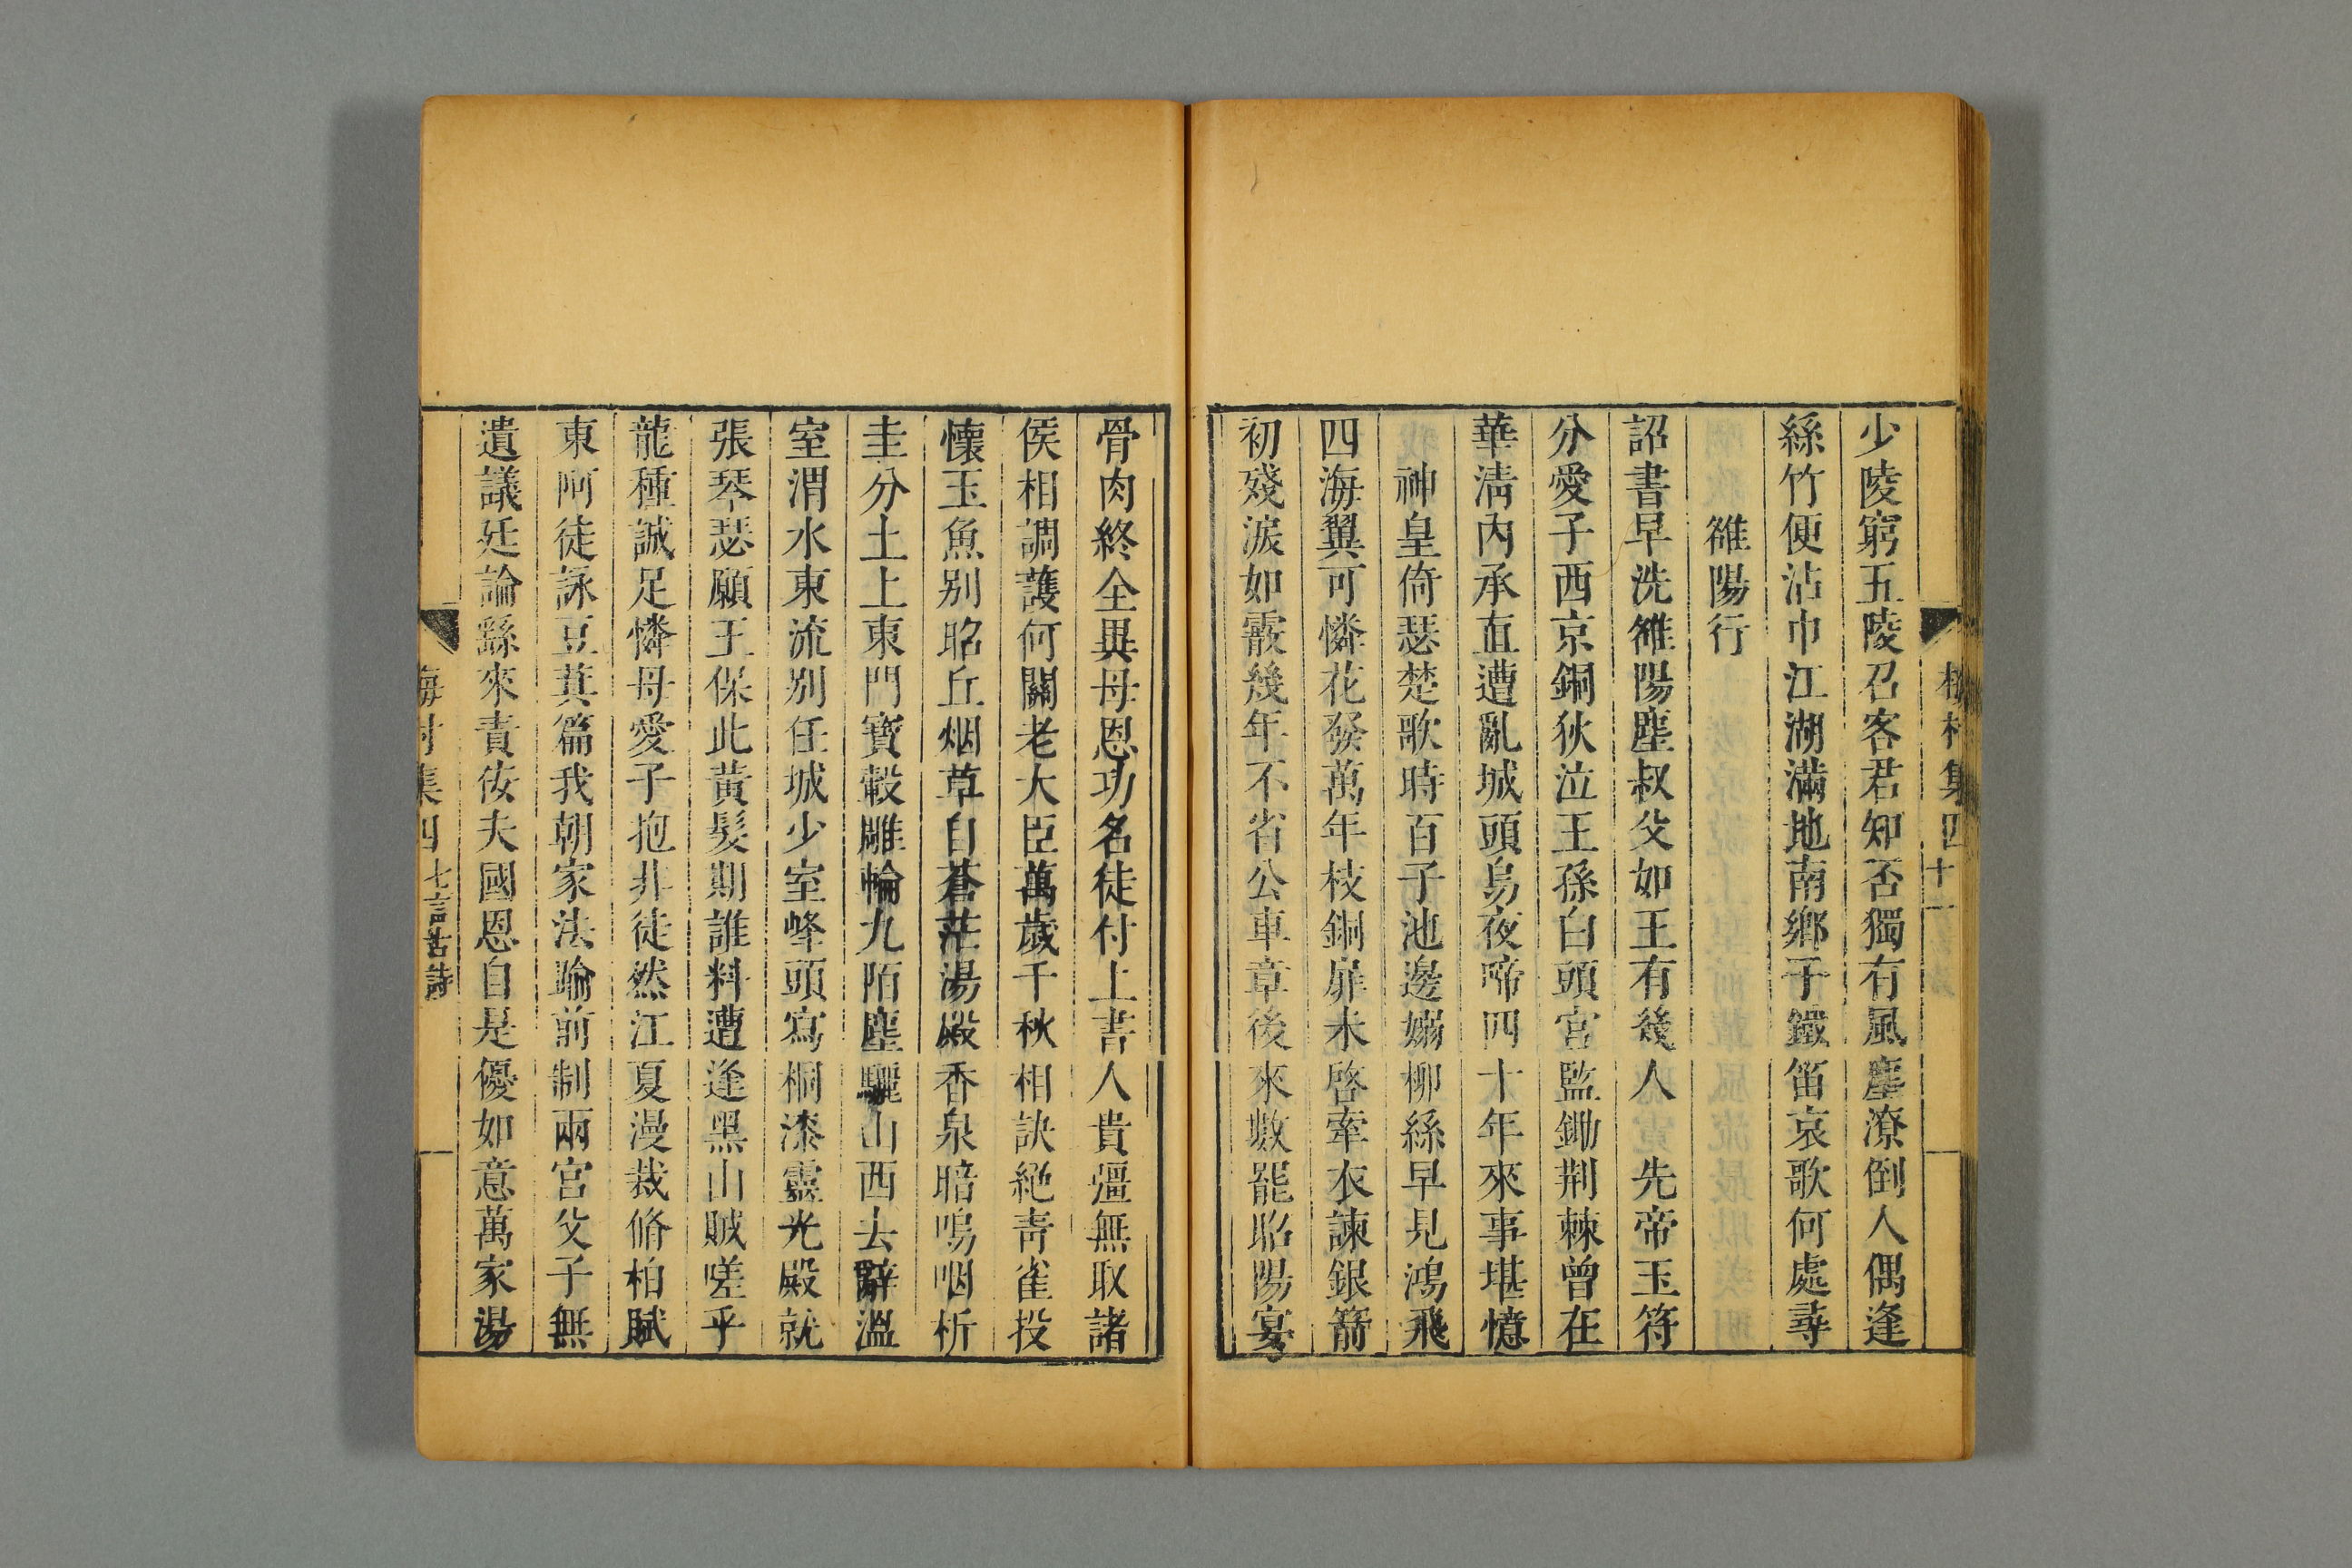 梅村集四 十一
少陵窮五陵召客君知否獨有風塵潦倒人偶逢
絲竹便沾巾江湖滿地南鄉子鐵笛哀歌何處尋
雒陽行
詔書早洗雒陽塵叔父如王有幾人 先帝玉符
分愛子西京銅狄泣王孫白頭宮監鋤荆棘曾在
華淸內承直遭亂城頭烏夜啼四十年來事堪憶
神皇倚瑟楚歌時百子池邊嫋柳絲早見鴻飛
四海翼可憐花發萬年枝銅扉未啓牽衣諫銀箭
初殘淚如霰幾年不省公車章後來數罷昭陽宴
骨肉終全異母恩功名徒付上書人貴彊無取諸
侯相調護何關老大臣萬歲千秋相訣絕靑雀投
懷玉魚別昭丘烟草自蒼茫湯殿香泉暗嗚咽析
圭分土上東門寶轂雕輪九陌塵驪山西去辭溫
室渭水東流別任城少室峰頭寫桐漆靈光殿就
張琴瑟願王保此黃髮期誰料遭逢黑山賊嗟乎
龍種誠足憐母愛子抱非徒然江夏漫裁脩柏賦
東阿徒詠豆萁篇我朝家法踰前制兩宮父子無
遺議廷論繇來責佞夫國恩自是優如意萬家湯
梅村集四 七言古詩